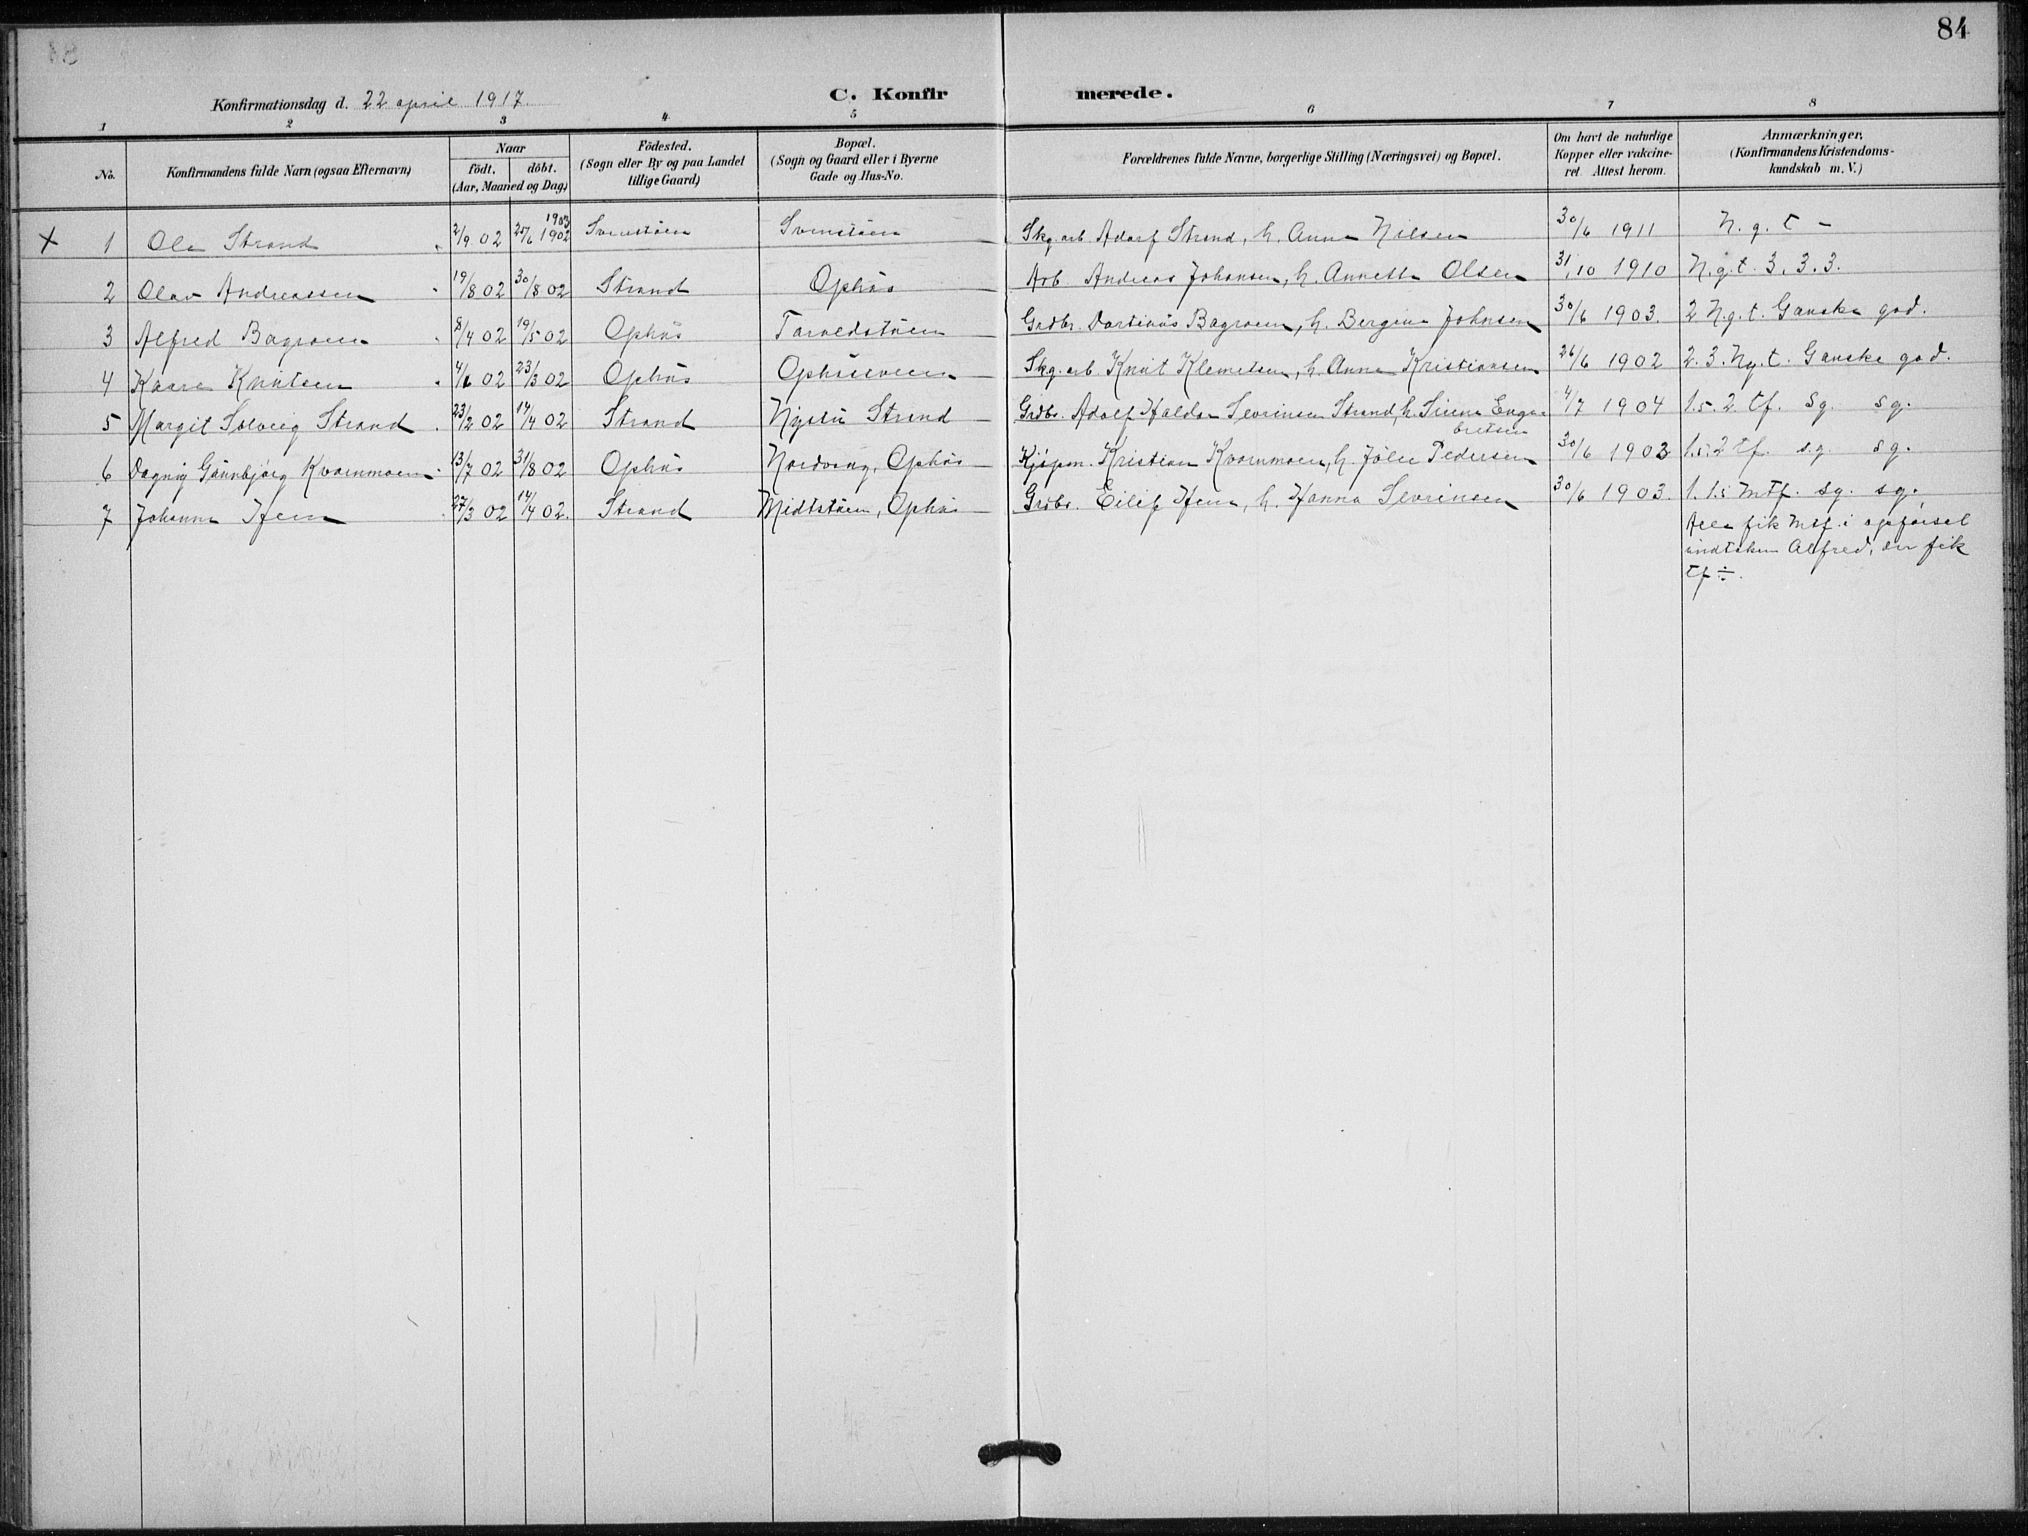 84
Konfirmationsdag d. 22 april 1917. C. Konfirmerede.
1 2 3 4 5 6 7 8
No. Konfirmandens fulde Navn (ogsaa Efternavn) Naar födt. döbt. (Aar, Maaned og Dag.) Födested. (Sogn eller By og paa Landet tillige Gaard) Bopæl. (Sogn og Gaard eller i Byerne Gade og Hus-No. Forældrenes fulde Navne, borgerlige Stilling (Næringsvei) og Bopæl. Om havt de naturlige Kopper eller vakcineret. Attest herom. Anmærkninger. (Konfirmandens Kristendomskundskab m. V.)
X 1 Ola Strand 2/9 02 25/6 1902 1903 Svenstöen Svenstöen Skg. arb. Adolf Strand, h. Anna Nilsen 30/6 1911 N.g.t -
2 Olav Andreassen 19/8 02 30/8 02 Strand Ophüs Arb. Andreas Johansen, h. Annette Olsen 31/10 1910 N.g.t. 3. 3. 3.
3 Alfred Bagroen 8/4 02 19/5 02 Ophüs Taroldstöen Grdbr. Bagroen, h. Bergine Johnsen 30/6 1903. 2 N.g.t. Ganske god.
4 Kaare Knütsen 4/6 02 23/3 02 Ophüs Skg. arb. Knüt Klemetsen, h. Anna Kristiansen 26/6 1902 2. 3. Ng.t. Ganske god.
5 Margit Solveig Strand 23/2 02 14/4 02 Strand Nystü Strand Grdbr. Adolf Haldor Sevrinsen Strand, h. Sirene Engebretsen 4/7 1904 1.5. 2. tf. Sg. sg.
6 Dagny Günnbjörg Kvarnmoen 13/7 02 31/8 02 Ophüs Nordvang, Ophüs Kjöpm. Kristian Kvarnmoen, h. Jülie Pedersen 30/6 1903 1.5. 2 tf. s.g. sg.
7 Johanne Hem 27/3 02 14/4 02. Strand Midtstöen, Ophüs Grdbr. Eilif Hem, h. Hanna Sevrinsen 30/6 1903. 1. 1.5 Mtf. sg. sg.
Alle fik Mtf. i opförsel
ündtaken Alfred, der fik
tf ÷.